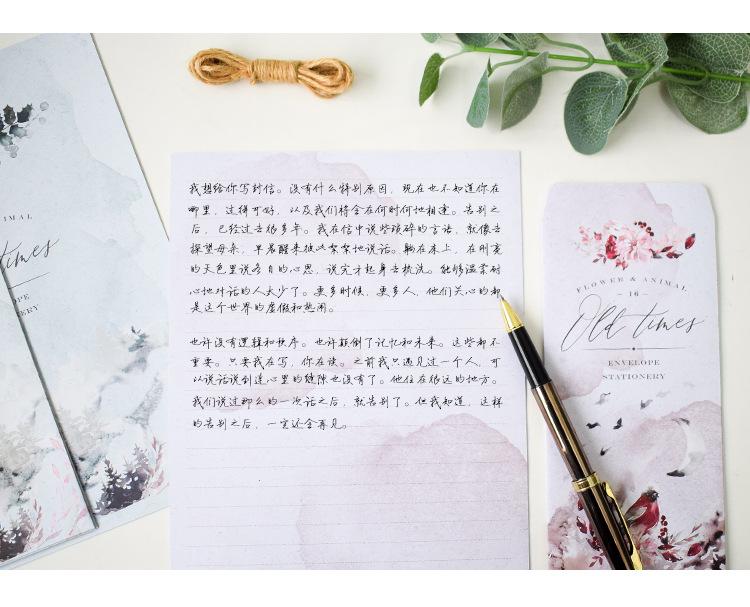 我想给你写封信。没有什么特别原因，现在也不知道你在
哪里，过得可好，以及我们将会在何时何地相逢。告别之
后，已经过去很多年。我在信中说些琐碎的言语，就像去
探望母亲，早晨醒来彼此絮絮地说话。躺在床上，在刚亮
的天色里说各自的心思，说完才起身去梳洗。能够温柔耐
心地对话的人太少了。更多时候，更多人，他们关心的都
是这个世界的虚假和热闹。
也许没有逻辑和秩序。也许颠倒了记忆和未来。这些都不
重要。只要我在写，你在读。之前我只遇见过一个人，可
以说话说到连心里的缝隙也没有了。他住在很远的地方。
我们说过那么的一次话之后，就告别了。但我知道，这样
的告别之后，一定还会再见。
FLOWER & ANIMAL
- 16 -
Old times
ENVELOPE
STATIONERY
IMAL
times
OPE
NERY